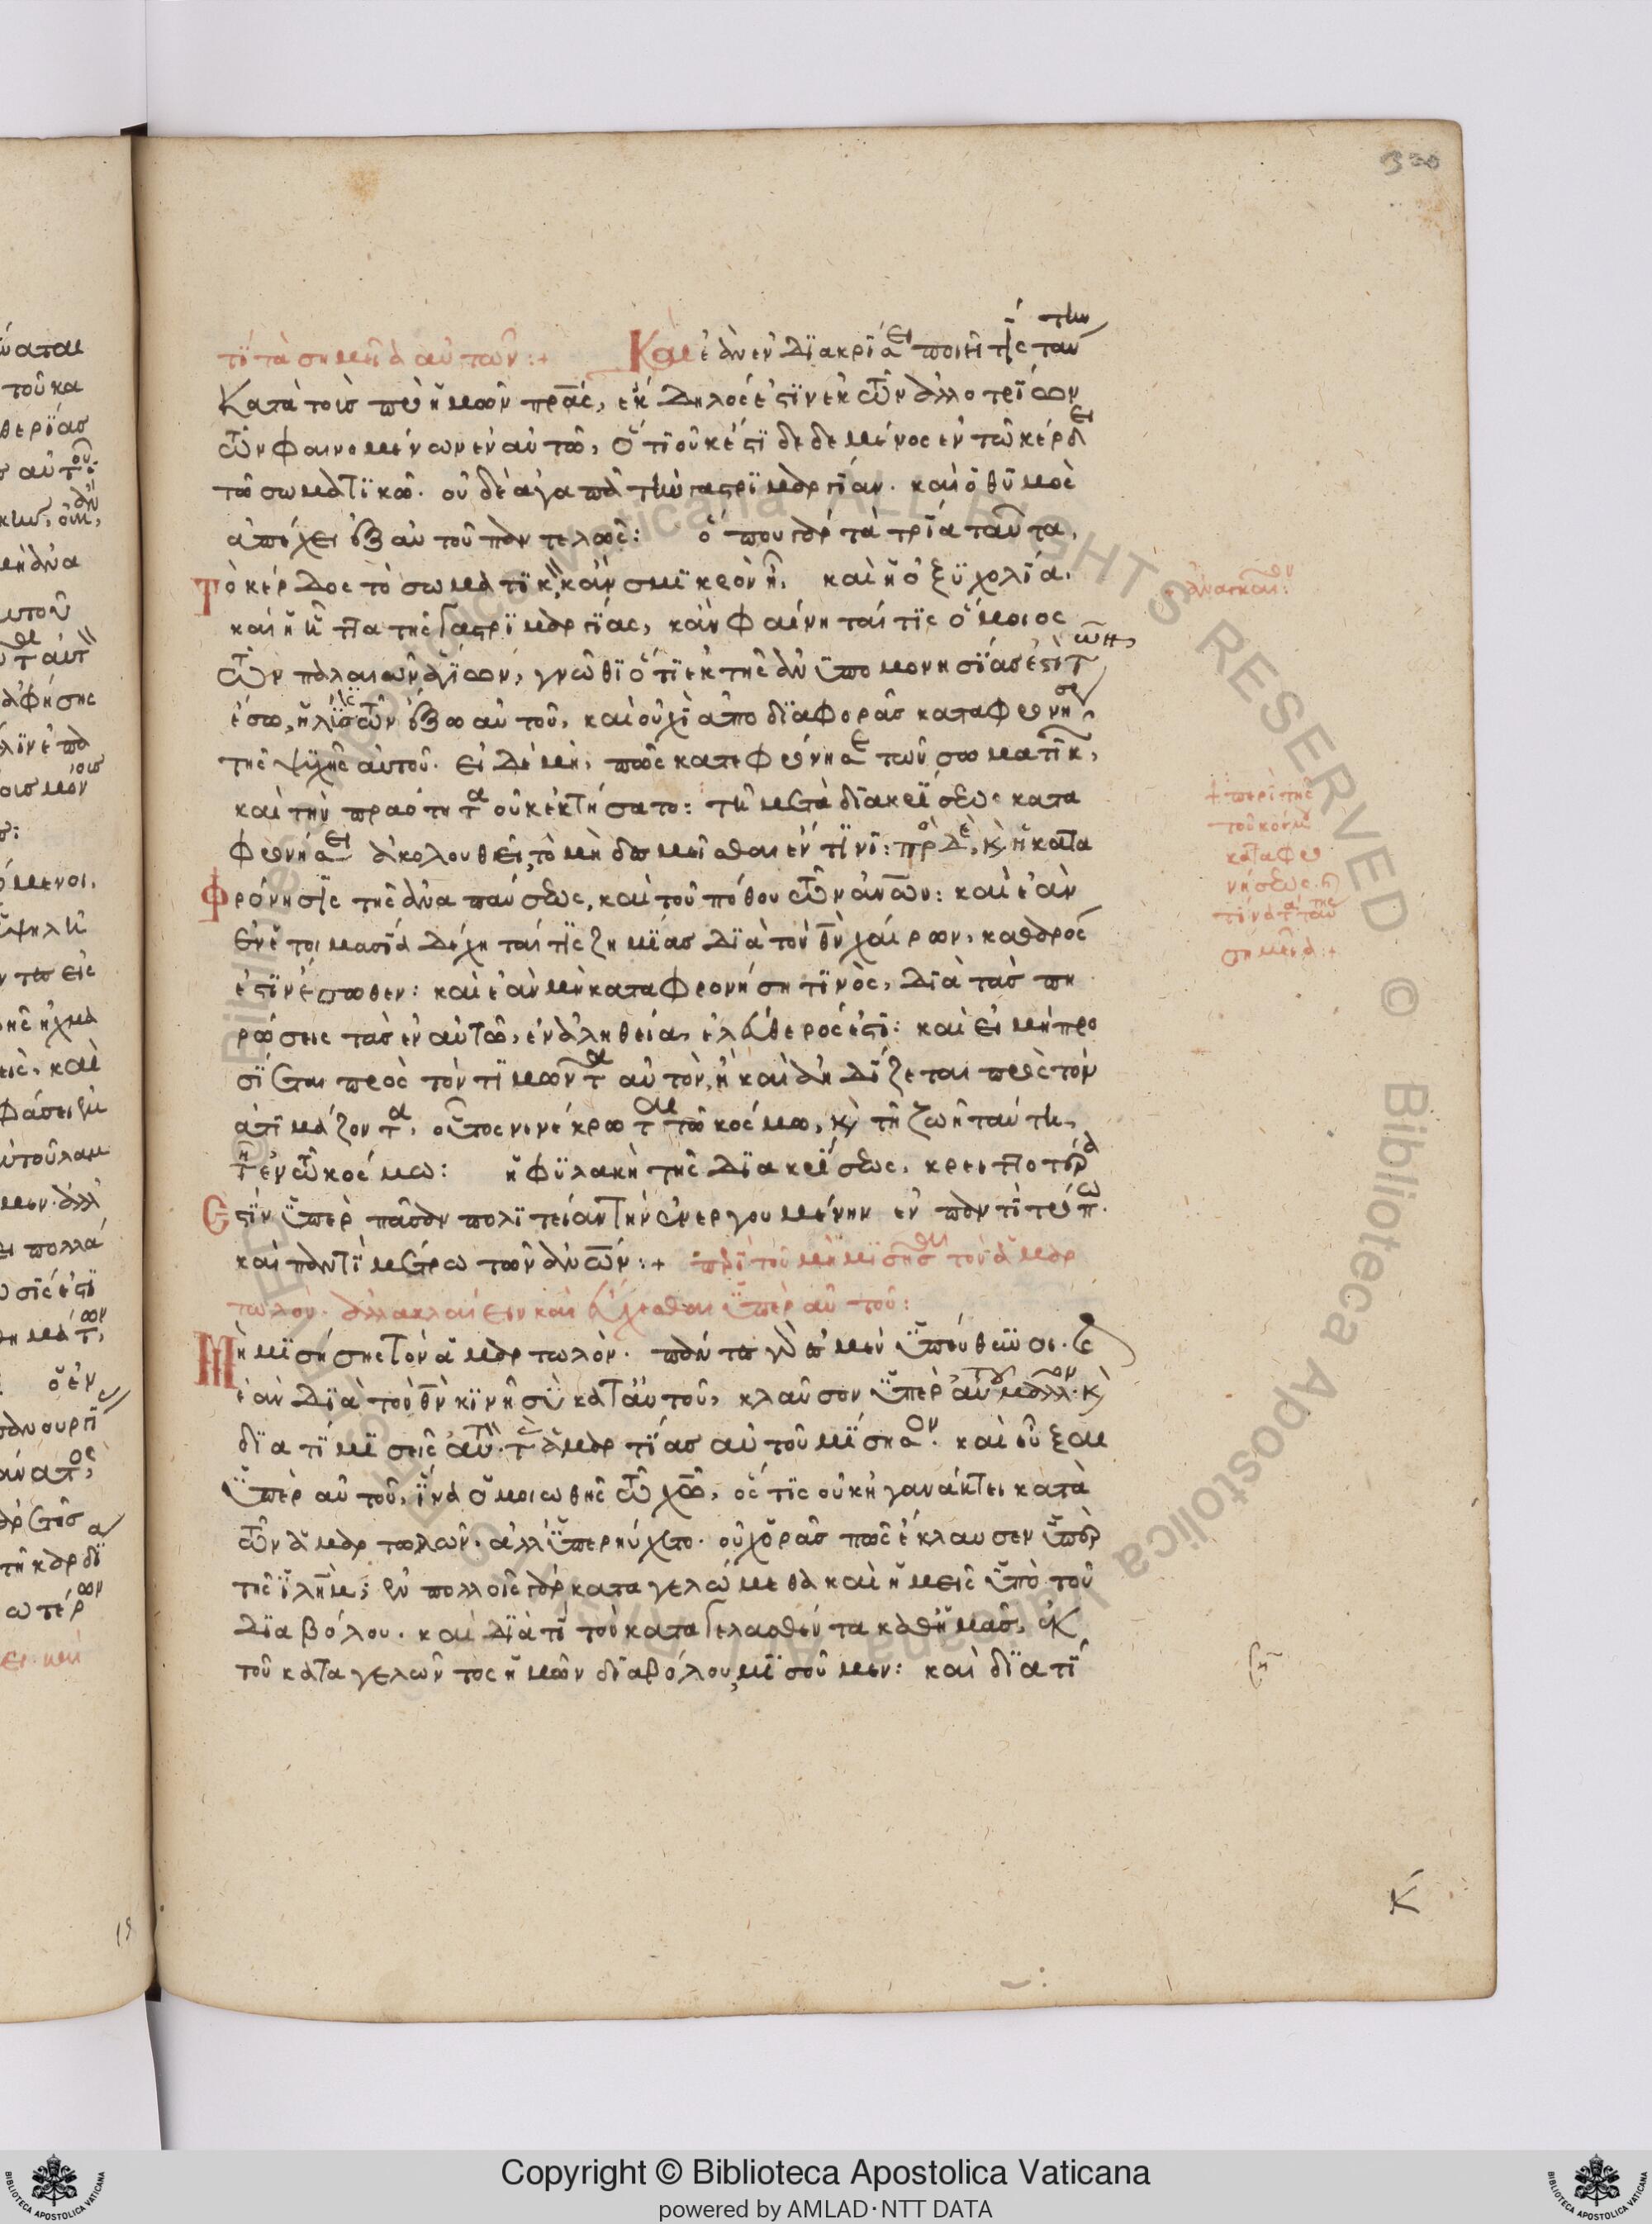 330
τί τὰ σημεῖα αὐτῶν :+ Καὶ ἐὰν ἐν διακρίσει ποιῇ τίς ταύτην
κατὰ τοὺς πρὸ ἡμῶν πρας, ἔκδηλός ἐστιν ἐκ τῶν ἀλλοτρίων
τῶν φαινομένων ἐν αὐτῶ, ὅτι οὐκ ἔστι δεδεμένος ἐν τῶ κέρδει
τῶ σωματικῶ. οὐδὲ ἀγαπᾶ τὴν γαστριμαργίαν. καὶ ὁ θυμὸς
ἀπέχει ἐξ αὐτοῦ παντελῶς: ὅπου γὰρ τὰ τρία ταῦτα,
Τὸ κέρδος τὸ σωματικὸν, κἂν σμικρὸν ᾖ, καὶ ἡ ὀξυχολία,
καὶ ἡ ἧττα τῆς γαστριμαργίας, κἂν φαίνηταί τις ὅμοιος
τῶν παλαιῶν ἁγίων, γνῶθι ὅτι ἐκ τῆς ἀνυπομονησίας ἐστὶ τῶν
ἔσω, ἡ λύσις τῶν ἔξω αὐτοῦ, καὶ οὐχὶ ἀπὸ διαφορᾶς καταφρονήσεως
τῆς ψυχῆς αὐτοῦ. εἰ δὲ μή, πῶς κατεφρόνησε τῶν σωματικῶν,
καὶ τὴν πραότητα οὐκ ἐκτήσατο: τῇ μετὰ διακρίσεως κατα
φρονήσει ἀκολουθεῖ, τὸ μὴ δεσμεῖσθαι ἔν τινι: πρὸς δὲ, καὶ ἡ κατα
Φρόνησις τῆς ἀναπαύσεως, καὶ τοῦ πόθου τῶν ἀνων: καὶ ἐὰν
ἐν ἑτοιμασίᾳ δέχηταί τις ζημίας διὰ τὸν θν χαίρων, καθαρός
ἐστιν ἔσωθεν: καὶ ἐὰν μὴ καταφρονήσῃ τινὸς, διὰ τὰς πη
ρώσεις τὰς ἐν αὐτῶ, ἐν ἀληθείᾳ, ἐλεύθερός ἐστι: καὶ εἰ μὴ προ
σίεται πρὸς τὸν τιμῶντα αὐτὸν, ἢ καὶ ἀηδίζεται πρὸς τὸν
ἀτιμάζοντα, οὗτος νενέκρωται τῶ κόσμω, καὶ τῇ ζωῇ ταύτῃ,
τῇ ἐν τῶ κόσμω: ἡ φυλακὴ τῆς διακρίσεως, κρειττοτέρα
Ἐστὶν ὑπὲρ πᾶσαν πολιτείαν τὴν ἐνεργουμένην ἐν παντὶ τρόπω.
καὶ παντὶ μέτρω τῶν ἀνων :+ περὶ τοῦ μὴ μισῆσαι τὸν ἁμαρ
τωλόν. ἀλλὰ κλαίειν καὶ εὔχεσθαι ὑπὲρ αὐτοῦ:
Μὴ μισήσῃς τὸν ἁμαρτωλόν. πάντες γάρ ἐσμεν ὑπεύθυνοι. καὶ
ἐὰν διὰ τὸν θν κινῇ σὺ κατ' αὐτοῦ, κλαῦσον ὑπὲρ αὐτοῦ μᾶλλον. καὶ
διατί μισεῖς αὐτὸν. τὰς ἁμαρτίας αὐτοῦ μίσησον. καὶ εὖξαι
ὑπὲρ αὐτοῦ, ἵνα ὁμοιωθῇς τῶ χω, ὅς τις οὐκ ἠγανάκτει κατὰ
τῶν ἁμαρτωλῶν. ἀλλ' ὑπερηύχετο. οὐχ ὁρᾶς πῶς ἔκλαυσεν ὑπὲρ
τῆς ἱλημ; ἐν πολλοῖς γὰρ καταγελώμεθα καὶ ἡμεῖς ὑπὸ τοῦ
διαβόλου. καὶ διατί τὸν καταγελασθέντα καθ' ἡμᾶς, ἐκ
τοῦ καταγελῶντος ἡμῶν διαβόλου, μισοῦμεν: καὶ διατί
ἀνάγκαιον:
+ περὶ τῆς
τοῦ κόσμου
καταφρο
νήσεως. καὶ
τίνα τὰ ταύτης
σημεῖα :+
Κ
Copyright © Biblioteca Apostolica Vaticana
powered by AMLAD·NTT DATA